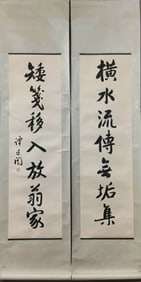 橫水流傳無垢集
矮箋移入放翁家
譚延闓